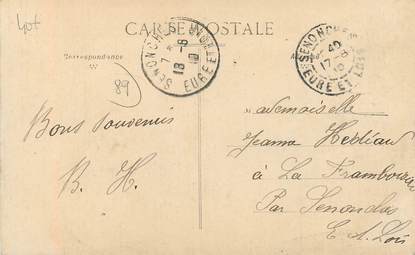 Lot
CARTE POSTALE
Correspondance
89
SENONCHES
EURE ET
SENONCHES
EURE ET LOIR
Bons Souvenirs
B. H.
Mademoiselle
Jeanne
à La Framboisière
Par Senonches
E. A. Loir